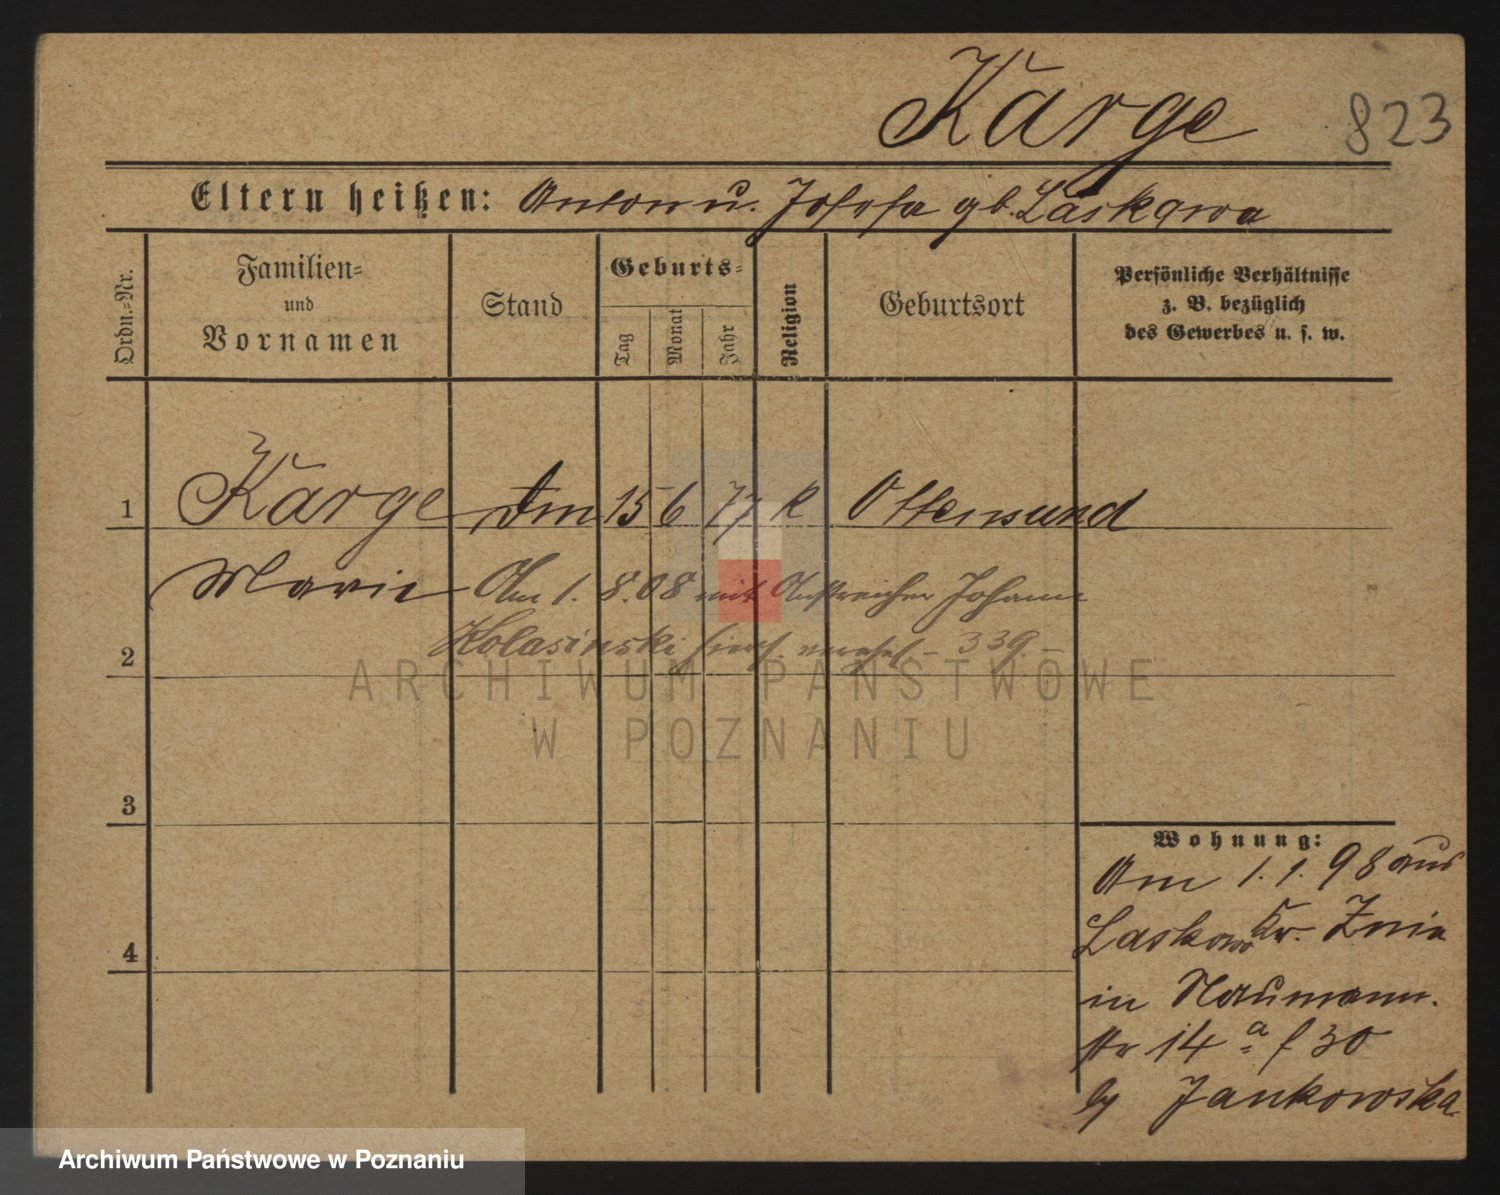 Karge
823
Eltern heißen: Anton u. Josefa gb. Laskowa
Ordn.-Nr.
Familien-
und
Vornamen
Stand
Geburts-
Tag
Monat
Jahr
Religion
Geburtsort
Persönliche Verhältnisse
z. B. bezüglich
des Gewerbes u. s. w.
1 Karge 15 6 77 k Ottensund
Marie Am 1. 8. 08 mit Anstreicher Johann
2 Kolasinski hiers. verehel - 339 -
3
4
Wohnung:
Am 1. 1. 98 aus
Laskowo Kr. Znin
in Naumann.
str 14 a f 30
by Jankowska
ARCHIWUM PAŃSTWOWE
W POZNANIU
Archiwum Państwowe w Poznaniu